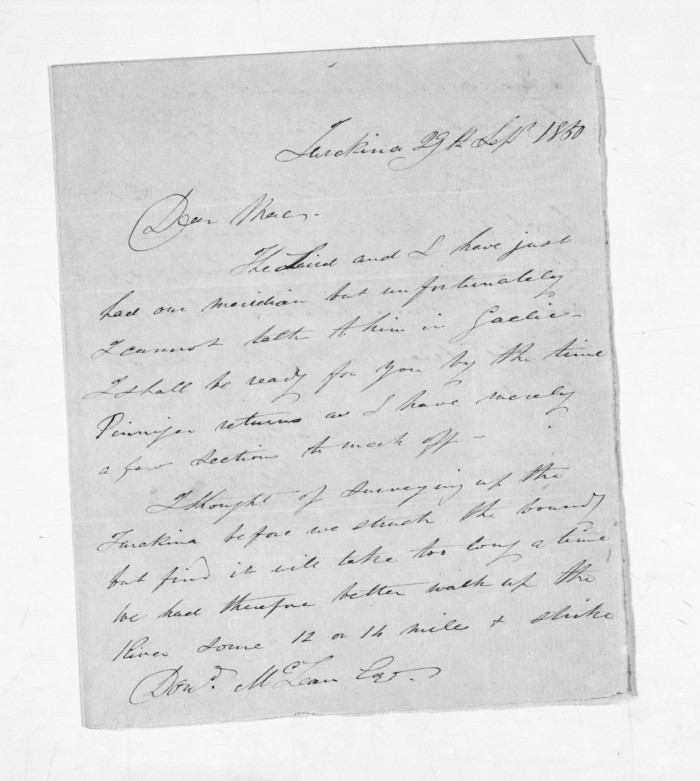 Turckina 29th Sepr. 1850
Dear Mac.
The Laird and I have just
had our meridian but unfortunately
I cannot talk to him in Gaelic -
I shall be ready for you by the time
Pinniger returns as I have merely
a few sections to mark off -
I thought of surveying up the
Turckina before we struck the boundy
but find it will take too long a time
we had therefore better walk up the
River some 12 or 14 mile & strike
Dond. McLean Esqr.